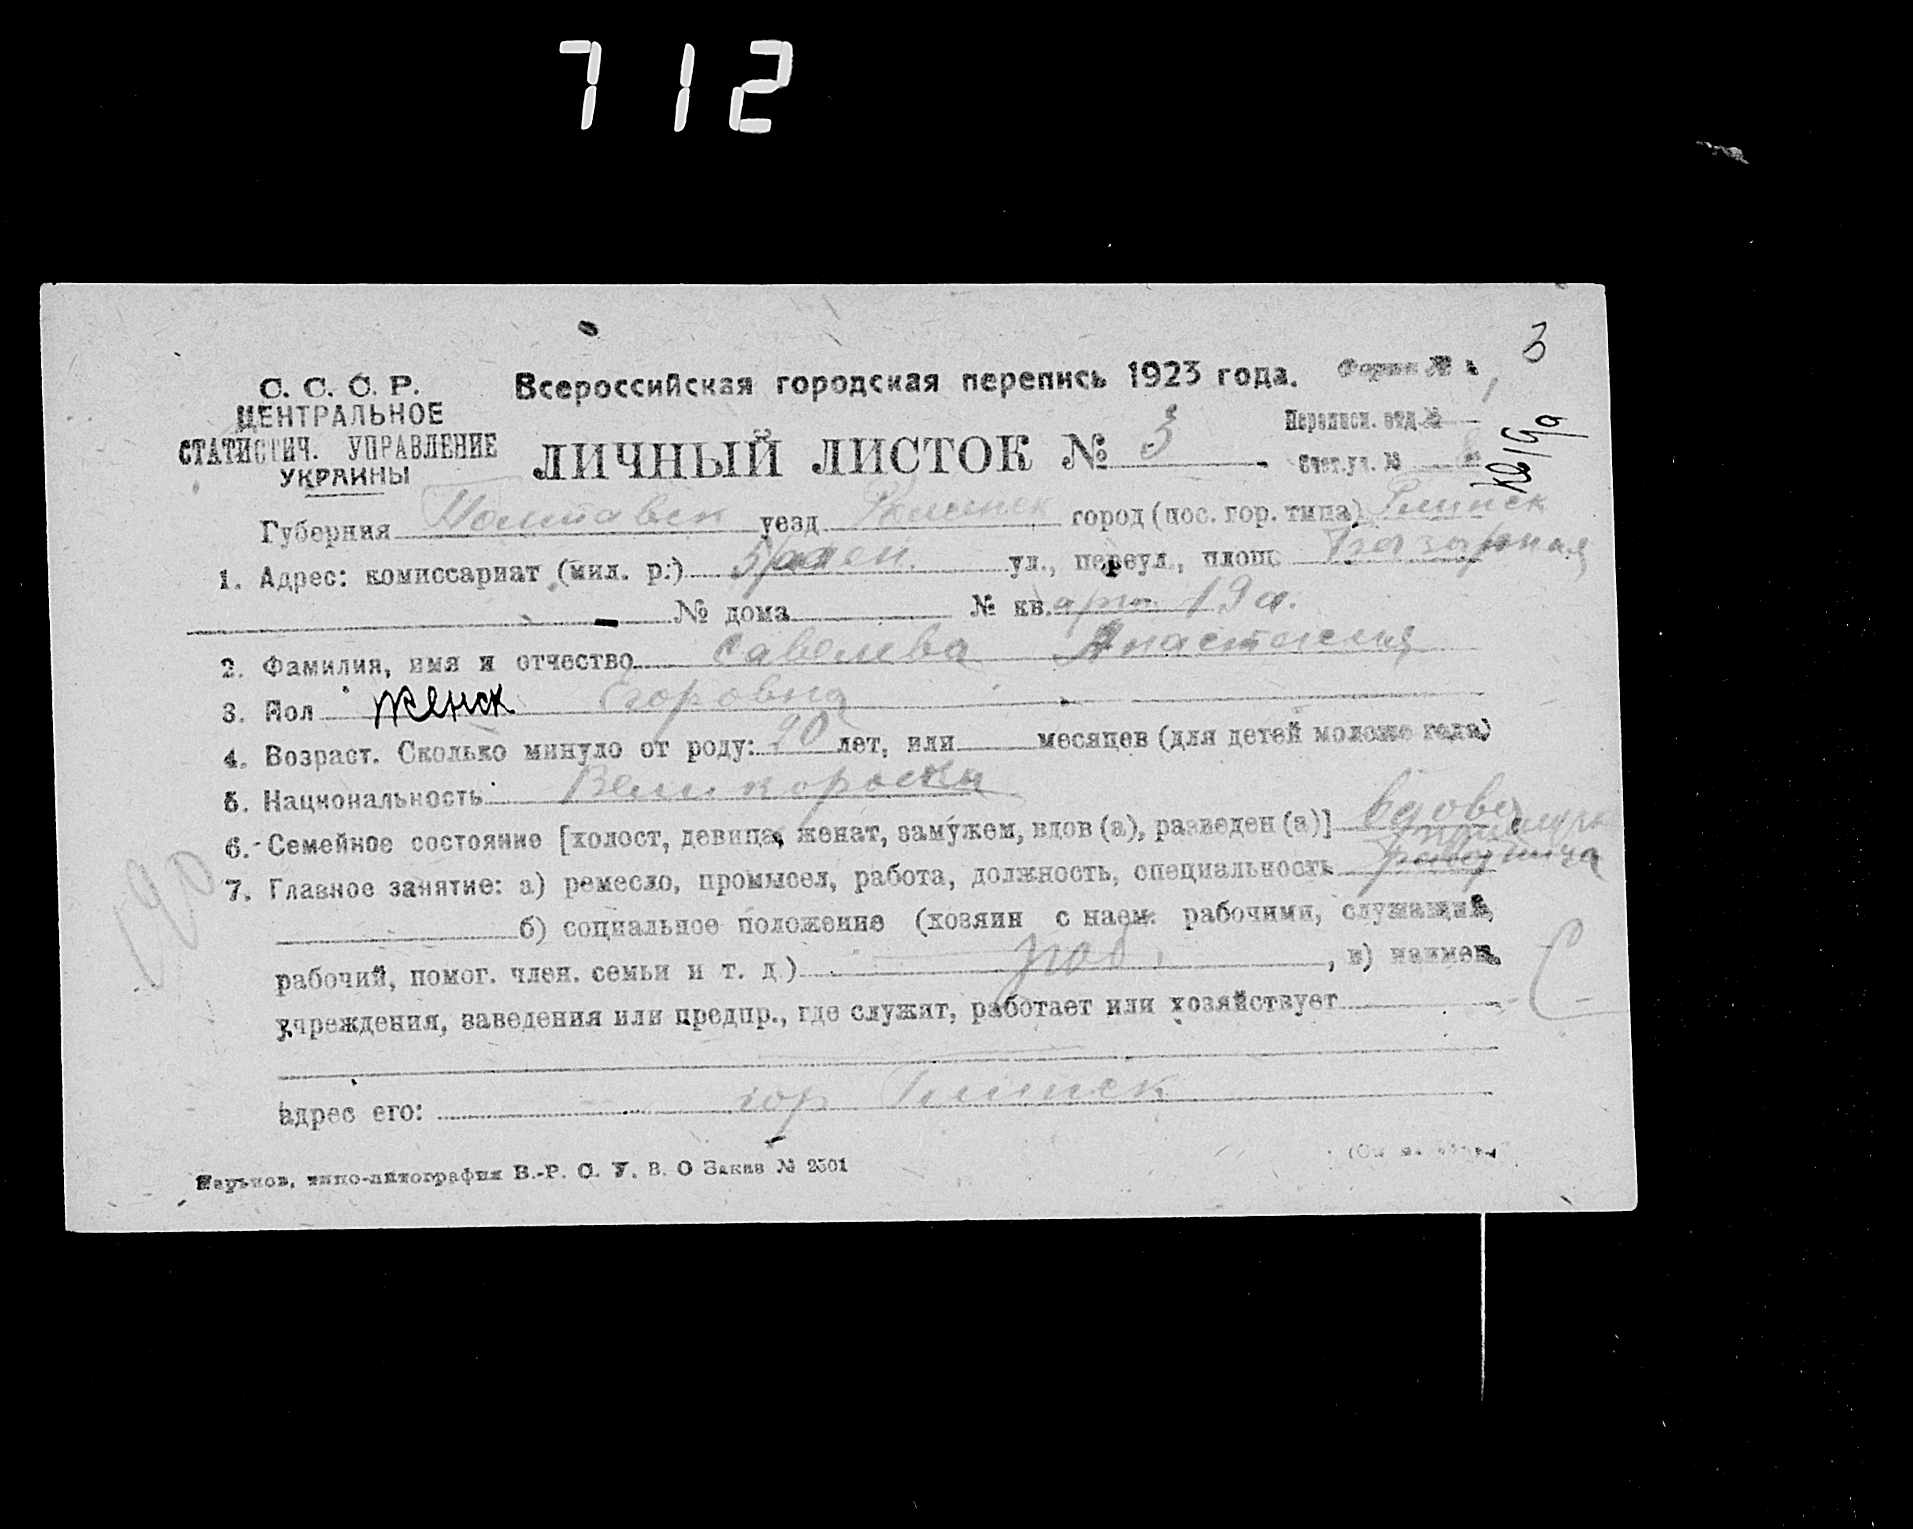 712
3
С. С. С. Р.
ЦЕНТРАЛЬНОЕ
СТАТИСТИЧ. УПРАВЛЕНИЕ
УКРАИНЫ
Всероссийская городская перепись 1923 года.
Форма №
ЛИЧНЫЙ ЛИСТОК № 3
Переписн. отд. №
Счет. уч. №
Губерния Полтавск уезд Роменск город (пос. гор. типа) Глинск
1. Адрес: комиссариат (мил. р.) ул., переул., площ. Базарная
№ дома № кв. 19 а.
2. Фамилия, имя и отчество Савелева Анастасия
3. Пол женск Егоровна
4. Возраст. Сколько минуло от роду: 90 лет, или месяцев (для детей моложе года)
5. Национальность Великороска
6. Семейное состояние [холост, девица, женат, замужем, вдов (а), разведен (а)] вдова
7. Главное занятие: а) ремесло, промысел, работа, должность, специальность
б) социальное положение (хозяин с наем. рабочими, служащий,
рабочий, помог. член. семьи и т. д.) , в) наимен.
учреждения, заведения или предпр., где служит, работает или хозяйствует
адрес его: гор Глинск
Харьков, типо-литография В.-Р. С. У. В. О Заказ № 2501